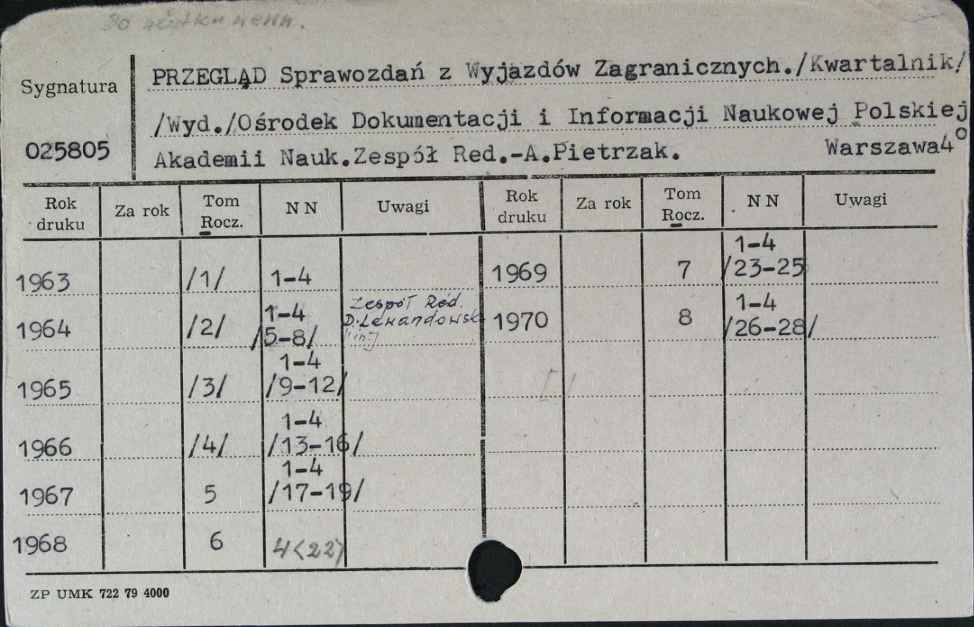 Do użytku wewn.
PRZEGLĄD Sprawozdań z Wyjazdów Zagranicznych./Kwartalnik/
Sygnatura
/Wyd./Ośrodek Dokumentacji i Informacji Naukowej Polskiej
025805
Akademii Nauk.Zespół Red.-A.Pietrzak. Warszawa4°
Rok druku Za rok Tom Rocz. NN Uwagi Rok druku Za rok Tom Rocz. NN Uwagi
1963 /1/ 1-4 1969 7 1-4 /23-25
1964 /2/ 1-4 /5-8/ Zespół Red. D.Lewandowski 1970 8 1-4 /26-28/
1965 /3/ 1-4 /9-12/
1966 /4/ 1-4 /13-16/
1967 5 1-4 /17-19/
1968 6 4<22>
ZP UMK 722 79 4000